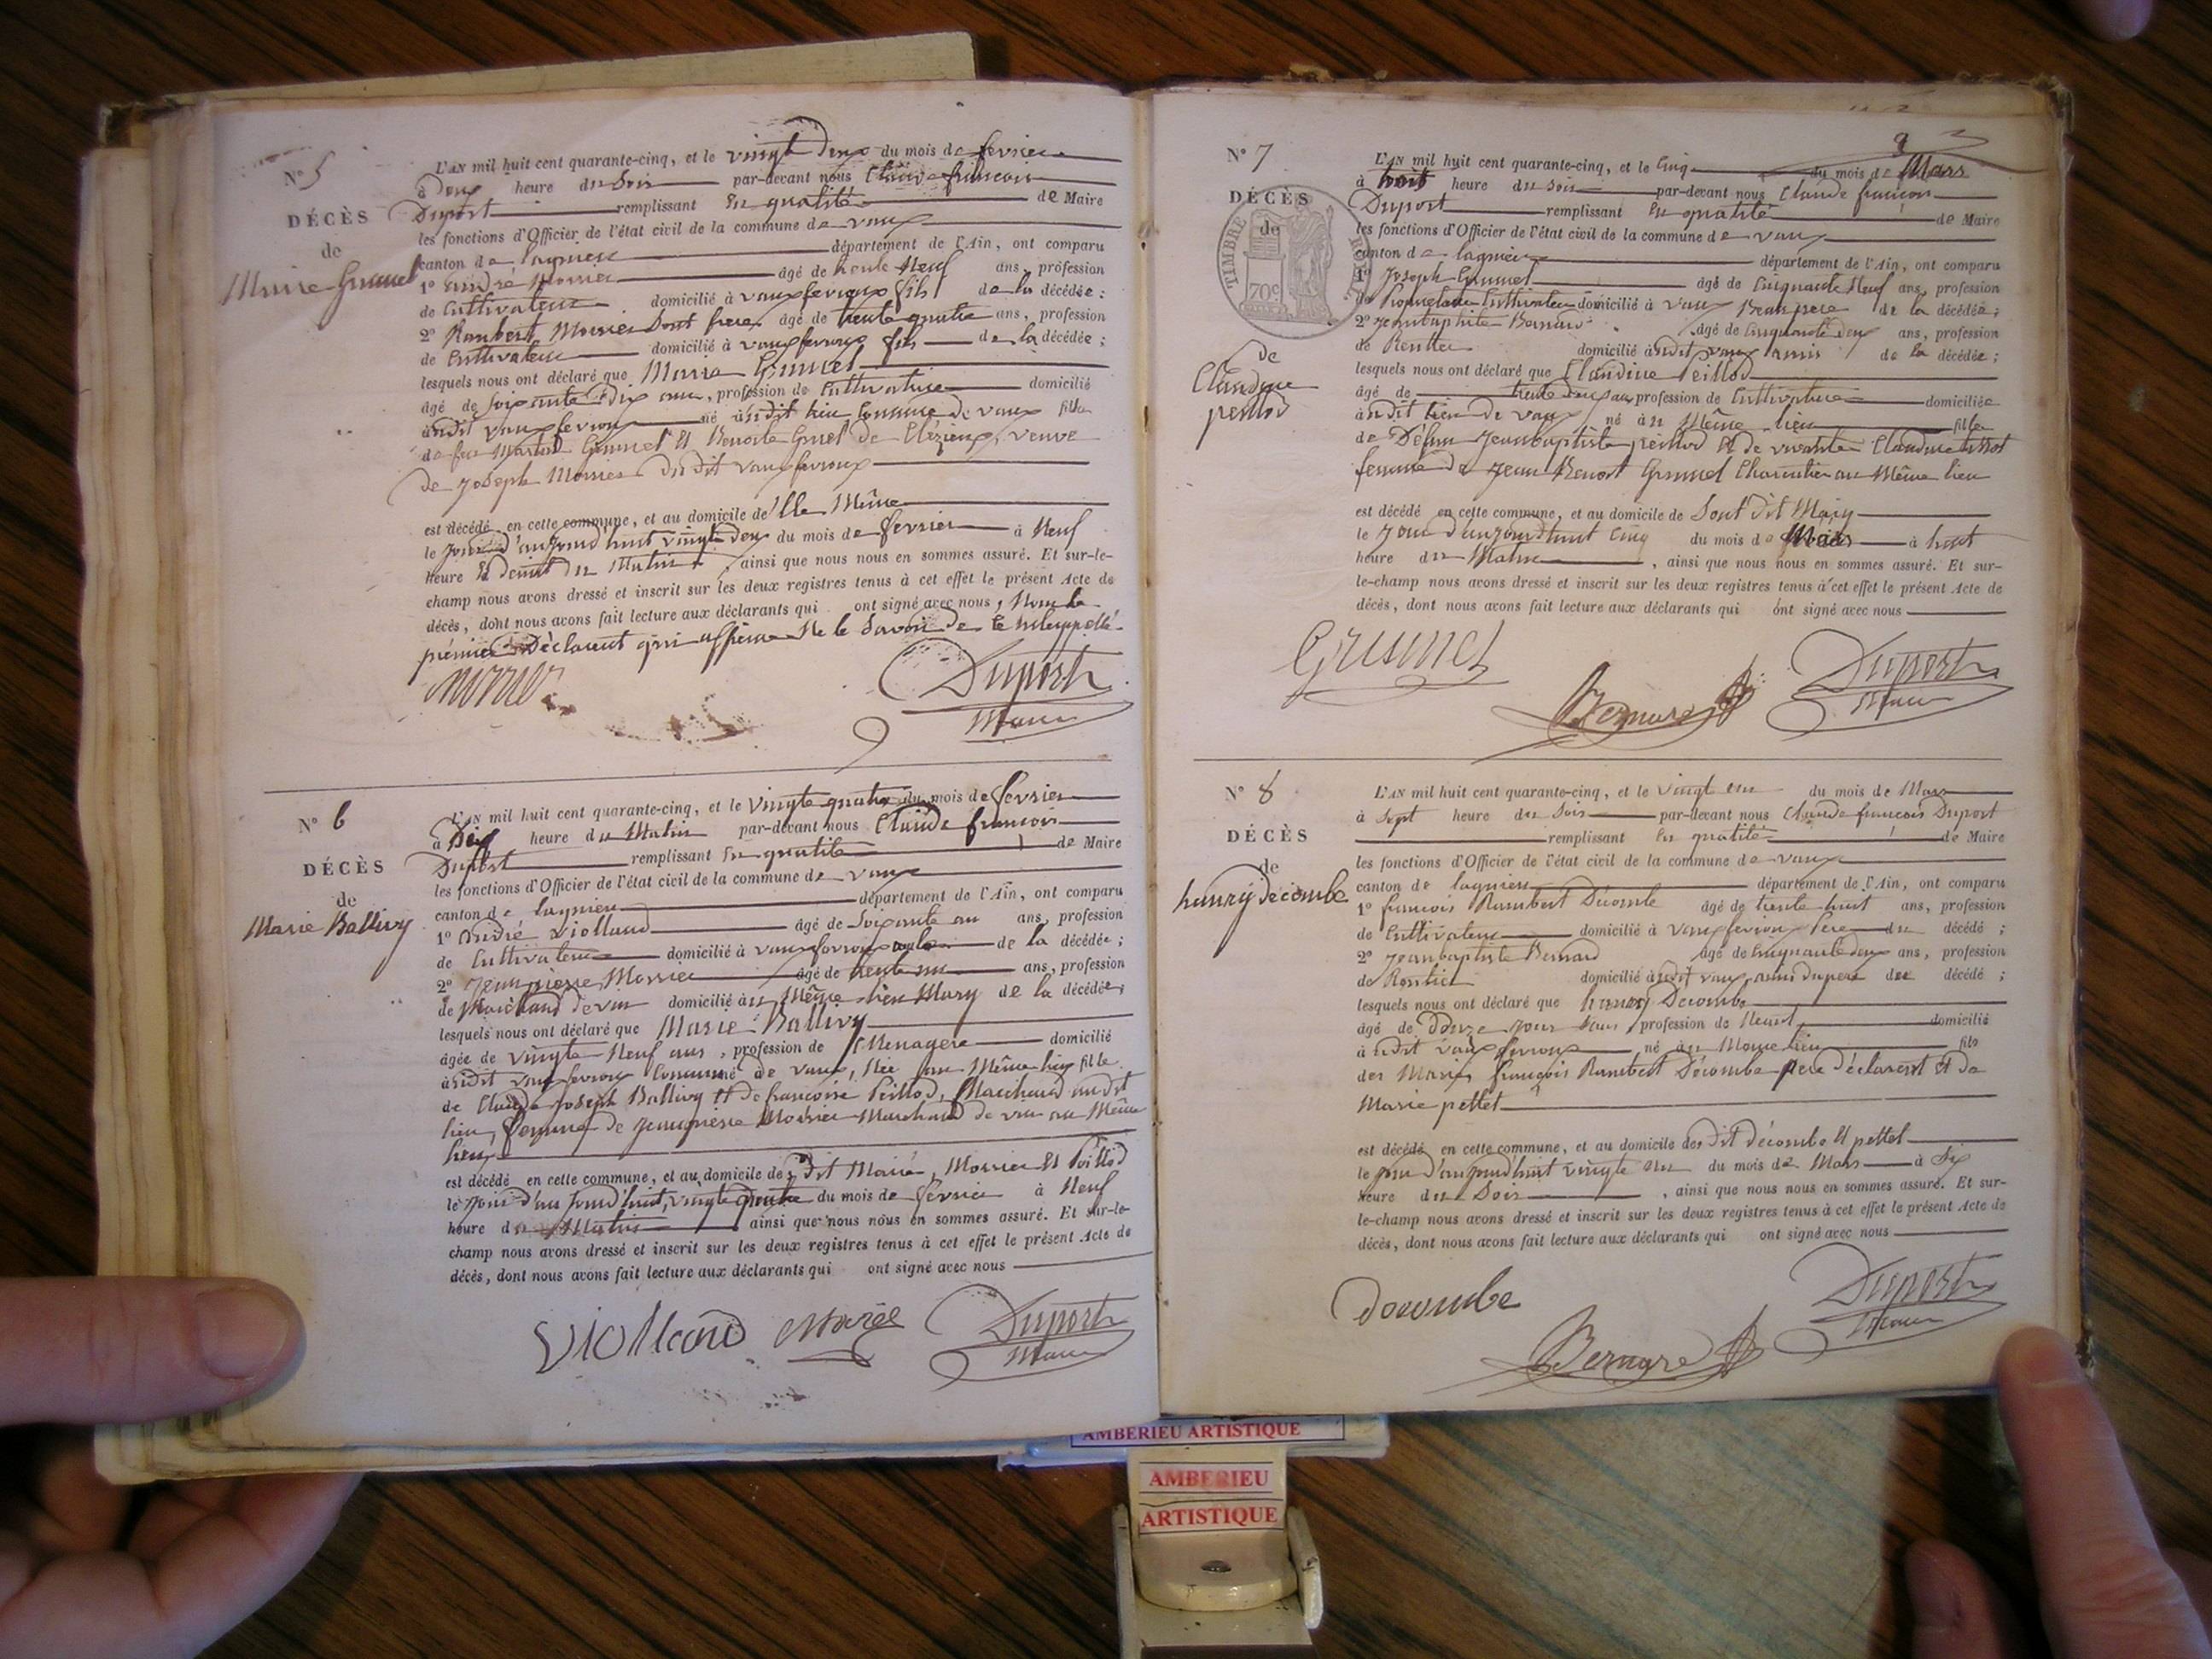 N° 5
DÉCÈS
de
Marie Grumel
L'AN mil huit cent quarante-cinq, et le vingt deux du mois de fevrier
à deux heure du Soir par-devant nous Claude françois
Duport remplissant en qualité de Maire
les fonctions d'Officier de l'état civil de la commune de vaux
canton de lagnieu département de l'Ain, ont comparu
1° andré Morrier âgé de trente Neuf ans, profession
de Cultivateur domicilié à vauxfevroux fils de la décédée;
2° Rambert Morrier Sont frere âgé de trente quatre ans, profession
de Cultivateur domicilié à vauxfevroux fils de la décédée;
lesquels nous ont déclaré que Marie Grumel
âgé de Soixante dix ans, profession de Cultivatrice domicilié
àudit vauxfevroux né àudit lieu Commune de vaux fille
de feu Martin Grumel et Benoite Grisel de Clézieux, veuve
de Joseph Morrier du dit vauxfevroux
est décédé en cette commune, et au domicile de Elle Même
le jour d'aujourd'huit vingt deux du mois de fevrier à Neuf
heure et demit du Matin, ainsi que nous nous en sommes assuré. Et sur-le-
champ nous avons dressé et inscrit sur les deux registres tenus à cet effet le présent Acte de
décès, dont nous avons fait lecture aux déclarants qui ont signé avec nous, Non le
premier Déclarent qui affirme Ne le Savoir de ce interppellé
morrier
Duport
Maire
N° 6
DÉCÈS
de
Marie Ballivy
L'AN mil huit cent quarante-cinq, et le vingte quatre du mois de fevrier
à Dix heure du Matin par-devant nous Claude francois
Duport remplissant en qualité de Maire
les fonctions d'Officier de l'état civil de la commune de vaux
canton de lagnieu département de l'Ain, ont comparu
1° André Violland âgé de Soixante un ans, profession
de Cultivateur domicilié à vauxfevroux de la décédée;
2° Jeanpierre Morrier âgé de trente un ans, profession
de Marchand de vin domicilié àu Même lieu Mary de la décédée;
lesquels nous ont déclaré que Marie Ballivy
âgée de vingte Neuf ans, profession de Menagere domicilié
àudit vauxfevroux Commune de vaux, Née au Même lieu fille
de Claude Joseph Ballivy et de francoise Peillod, Marchand audit
lieu, femme de Jeanpierre Morrier Marchand de vin au Même
lieu
est décédé en cette commune, et au domicile des dit Marié, Morrier et Peillod
le jour d'au jourd'huit, vingte quatre du mois de fevrier à Neuf
heure du Matin ainsi que nous nous en sommes assuré. Et sur-le-
champ nous avons dressé et inscrit sur les deux registres tenus à cet effet le présent Acte de
décès, dont nous avons fait lecture aux déclarants qui ont signé avec nous
Violland
Duport
Maire
9
N° 7
DÉCÈS
de
TIMBRE ROYAL
70c
de
Claudine
peillod
L'AN mil huit cent quarante-cinq, et le Cinq du mois de Mars
à huit heure du Soir par-devant nous Claude françois
Duport remplissant en qualité de Maire
les fonctions d'Officier de l'état civil de la commune de vaux
canton de lagnieu département de l'Ain, ont comparu
1° Joseph Grumel âgé de Cinquante Neuf ans, profession
de Propriétaire Cultivateur domicilié à vaux Beaupere de la décédée;
2° Jeanbaptiste Bernard âgé de Cinquante deux ans, profession
de Rentier domicilié àudit vaux amis de la décédée;
lesquels nous ont déclaré que Claudine Peillod
âgé de trente deux ans profession de Cultivatrice domiciliée
àudit lieu de vaux né àu Même lieu fille
de Défun Jeanbaptiste peillod et de vivante Claudine tissot
femme de Jean Benoit Grumel Charcutier au Même lieu
est décédé en cette commune, et au domicile de Sont dit Mary
le jour d'aujourd'huit Cinq du mois de Mars à huit
heure du Matin, ainsi que nous nous en sommes assuré. Et sur-
le-champ nous avons dressé et inscrit sur les deux registres tenus à cet effet le présent Acte de
décès, dont nous avons fait lecture aux déclarants qui ont signé avec nous
Grumel
Bernard
Duport
Maire
N° 8
DÉCÈS
de
henry décombe
L'AN mil huit cent quarante-cinq, et le vingt un du mois de Mars
à Sept heure du Soir par-devant nous Claude françois Duport
remplissant en qualité de Maire
les fonctions d'Officier de l'état civil de la commune de vaux
canton de lagnieu département de l'Ain, ont comparu
1° françois Rambert Décombe âgé de trente huit ans, profession
de Cultivateur domicilié à vauxfevroux Pere du décédé;
2° Jeanbaptiste Bernard âgé de Cinquante deux ans, profession
de Rentier domicilié àudit vaux, ami du pere du décédé;
lesquels nous ont déclaré que henry Décombe
âgé de Douze jour Sans profession de Neant domicilié
à udit vaux fevroux né àu Meme lieu fils
des Mariés françois Rambert Décombe pere déclarent et de
Marie pettet
est décédé en cette commune, et au domicile des dit décombe et pettet
le jour d'aujourd'huit vingte un du mois de Mars à Six
heure du Soir, ainsi que nous nous en sommes assuré. Et sur-
le-champ nous avons dressé et inscrit sur les deux registres tenus à cet effet le présent Acte de
décès, dont nous avons fait lecture aux déclarants qui ont signé avec nous
decombe
Bernard
Duport
Maire
AMBERIEU ARTISTIQUE
AMBERIEU
ARTISTIQUE